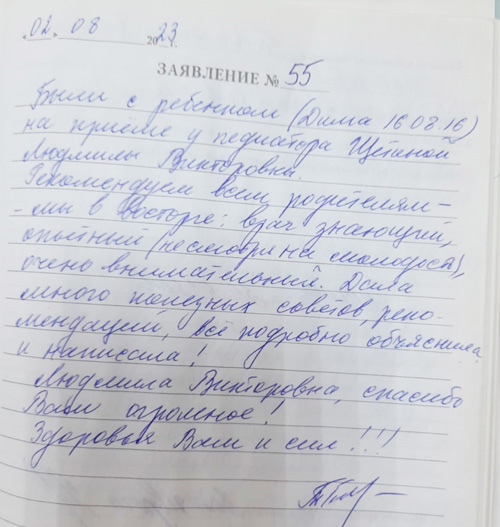 02. 08 2023 г.
ЗАЯВЛЕНИЕ № 55
Были с ребенком (Дима 16.08.16)
на приёме у педиатора Щетиной
Людмилы Викторовны.
Рекомендуем всем родителям -
- мы в восторге: врач знающий,
опытный (несмотря на молодость),
очень внимательный. Дала
много полезных советов, реко-
мендаций, всё подробно объяснила
и написала!
Людмила Викторовна, спасибо
Вам огромное!
Здоровья Вам и сил!!!